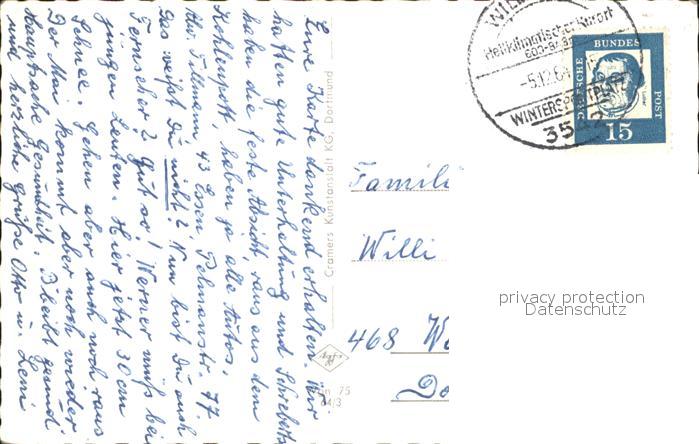 Eure Karte dankend erhalten. Wir
hatten gute Unterhaltung und Schreberts
haben die feste Absicht, raus aus dem
Kohlenpott, haben ja alle Autos.
Abs. Tillmann, 43 Essen, 77.
Das weißt Du nicht? Nun bist Du auch
Fernseher? Gut so! Werner muß bei
jungen Leuten. Hier jetzt 30 cm
Schnee. Gehen aber auch noch raus
Der Mai kommt aber noch wieder
Hauptsache Gesundheit. Bleibt gesund
und herzliche Grüße Otto u. Leni
Cramers Kunstanstalt KG, Dortmund
Agfa
75
4/3
Famili
Willi
468 Wa
Do
Heilklimatischer Kurort
600-8
-5.12.64
WINTERSPORTPLATZ
3542
DEUTSCHE BUNDES POST
Luther
15
privacy protection
Datenschutz